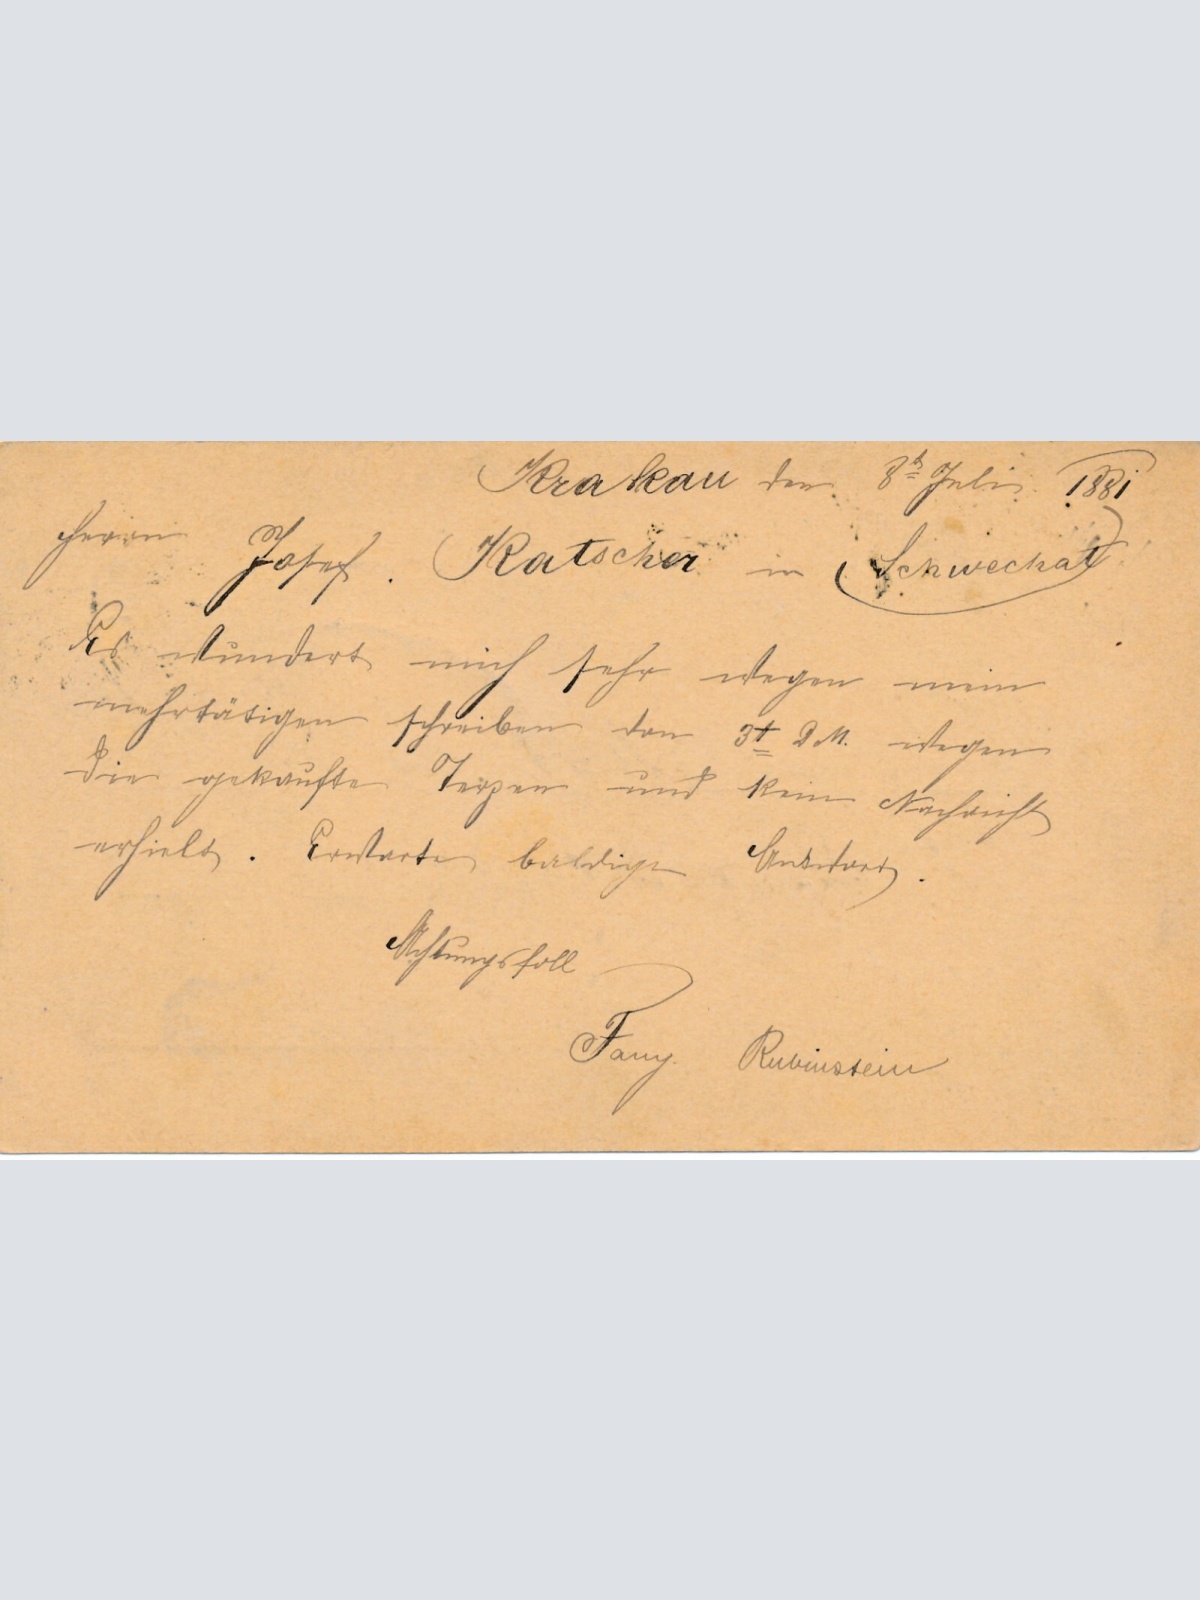 Krakau den 8ten Juli 1881
Herrn Josef. Katscher in Schwechat
Es wundert mich sehr wegen mein
mehrtätigen schreiben von 3t D.M. wegen
die gekaufte und kein Nachricht
erhielt. Erwarte baldige Antwort.
Achtungsfoll
Fany. Rubinstein